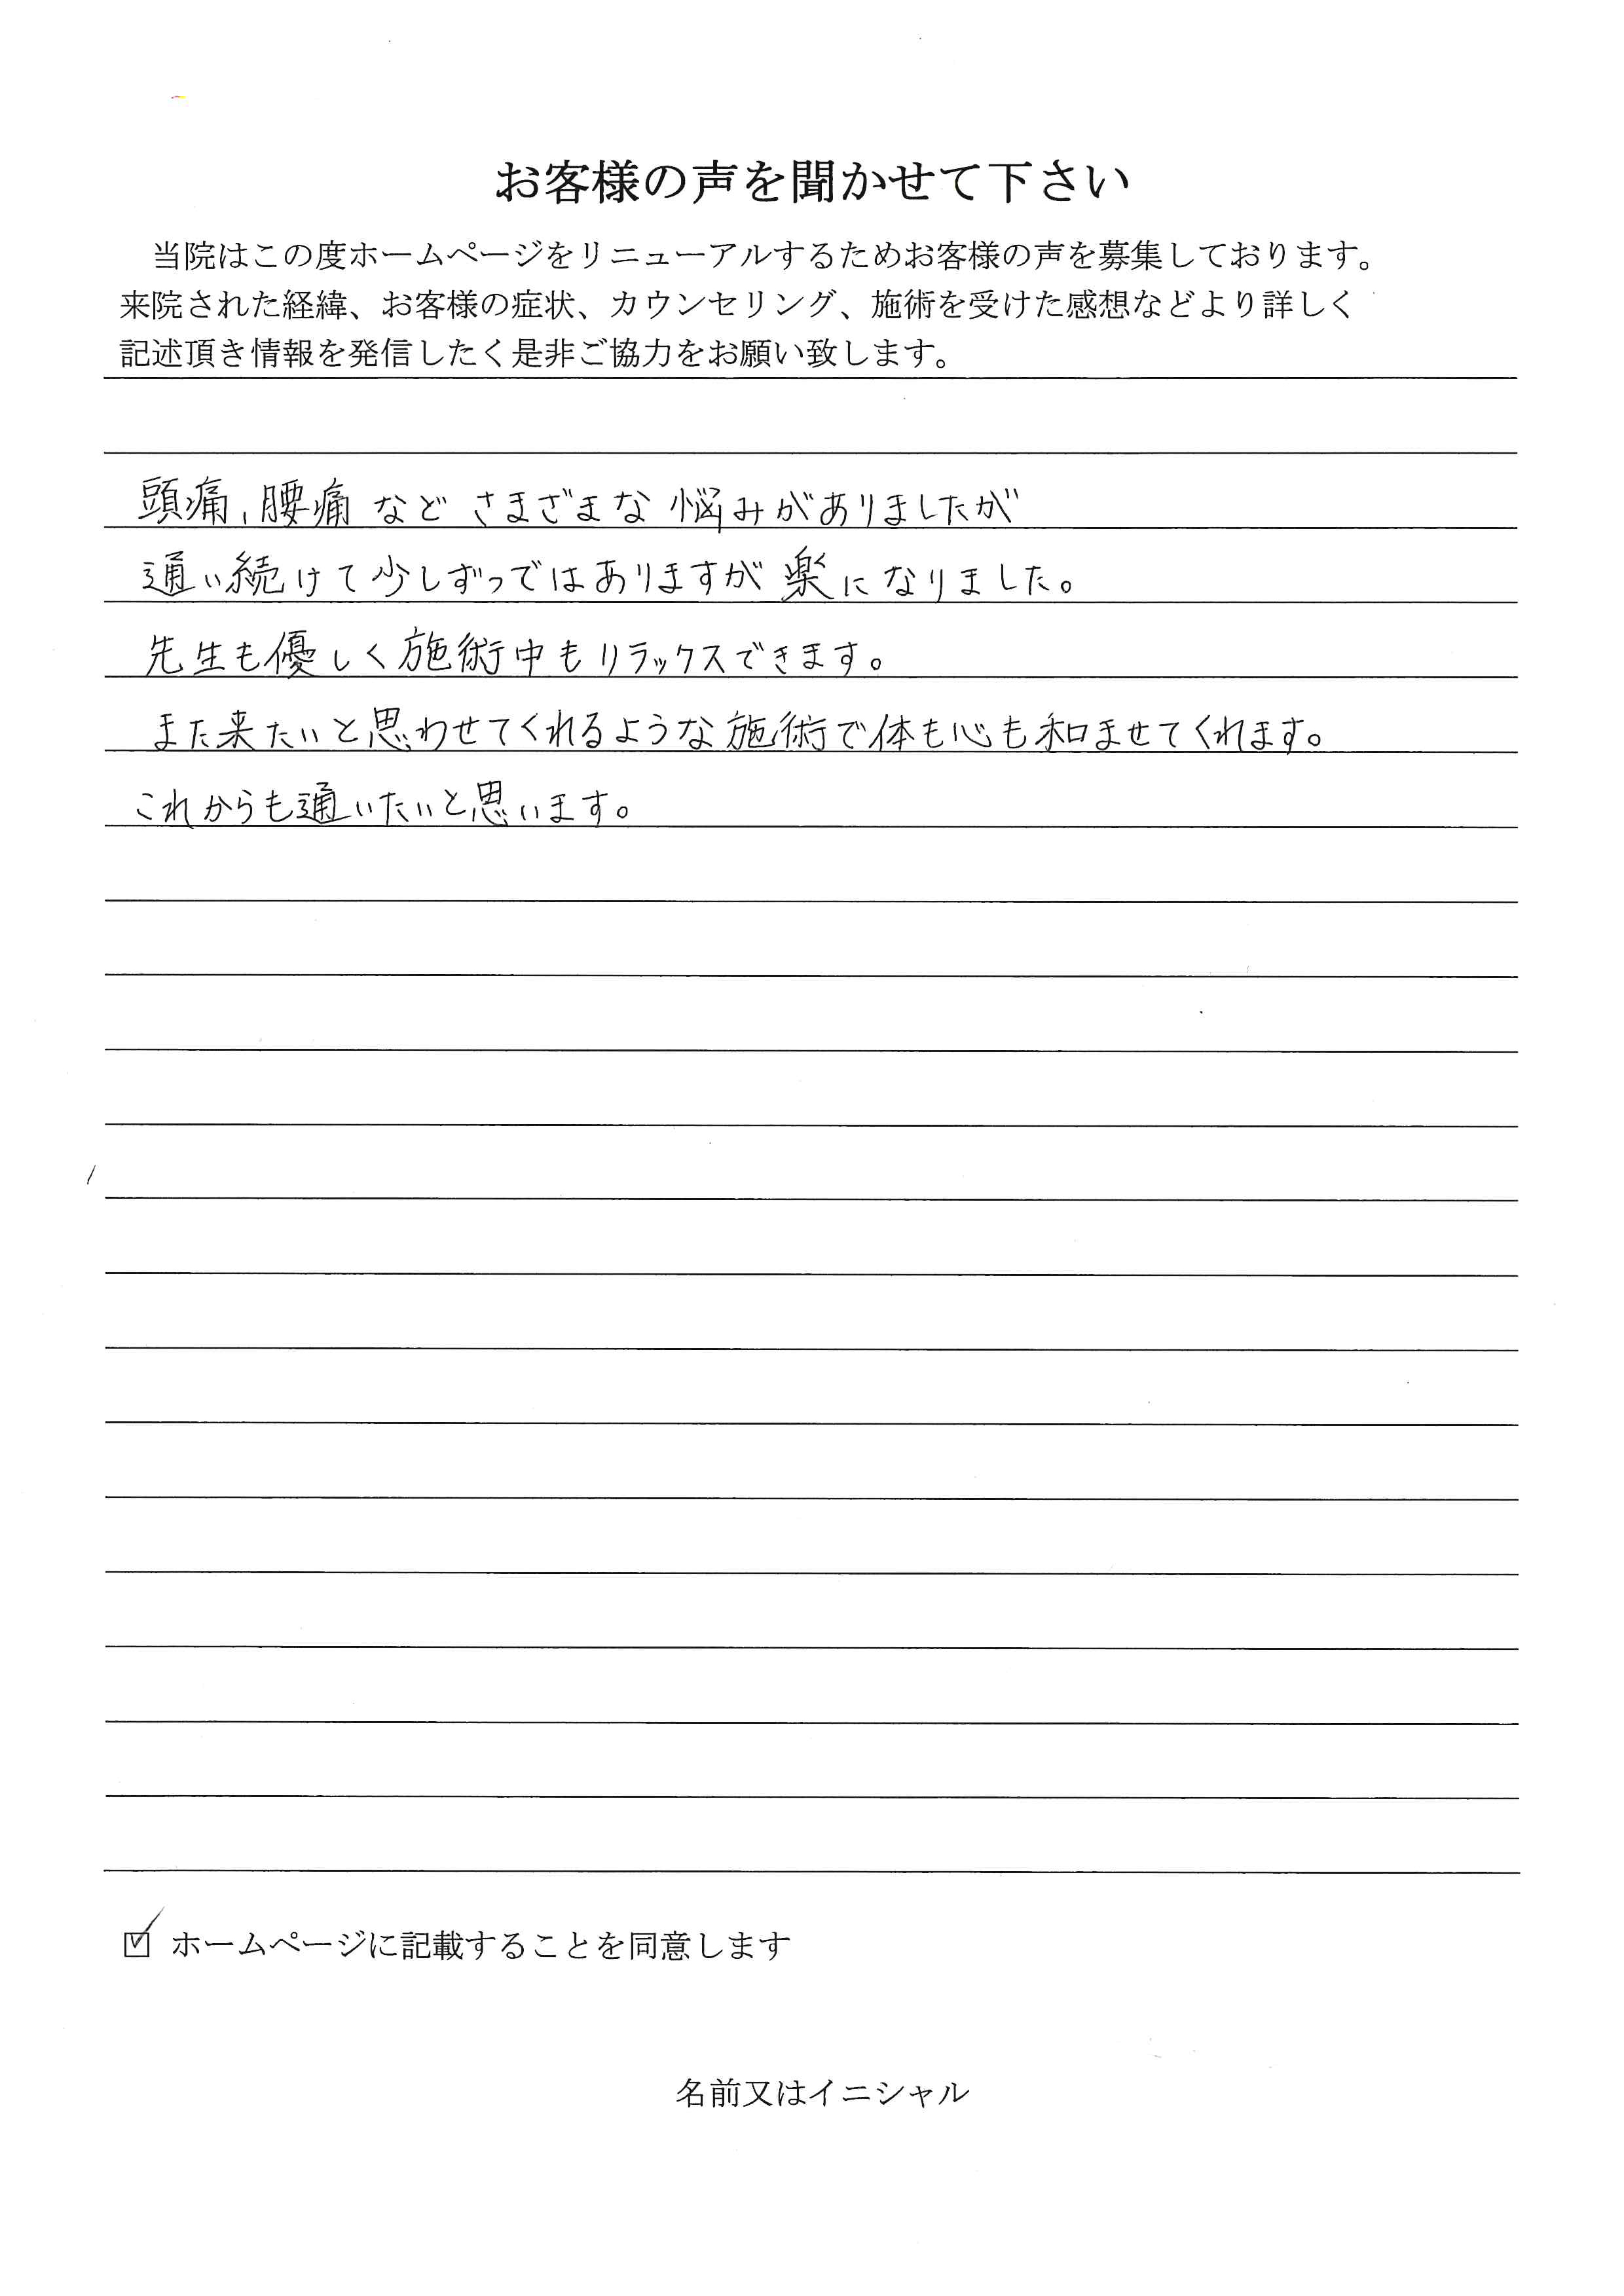 お客様の声を聞かせて下さい
当院はこの度ホームページをリニューアルするためお客様の声を募集しております。
来院された経緯、お客様の症状、カウンセリング、施術を受けた感想などより詳しく
記述頂き情報を発信したく是非ご協力をお願い致します。
頭痛、腰痛 など さまざまな 悩みがありましたが
通い続けて少しずつではありますが 楽になりました。
先生も優しく施術中もリラックスできます。
また来たいと思わせてくれるような施術で体も心も和ませてくれます。
これからも通いたいと思います。
☑ ホームページに記載することを同意します
名前又はイニシャル